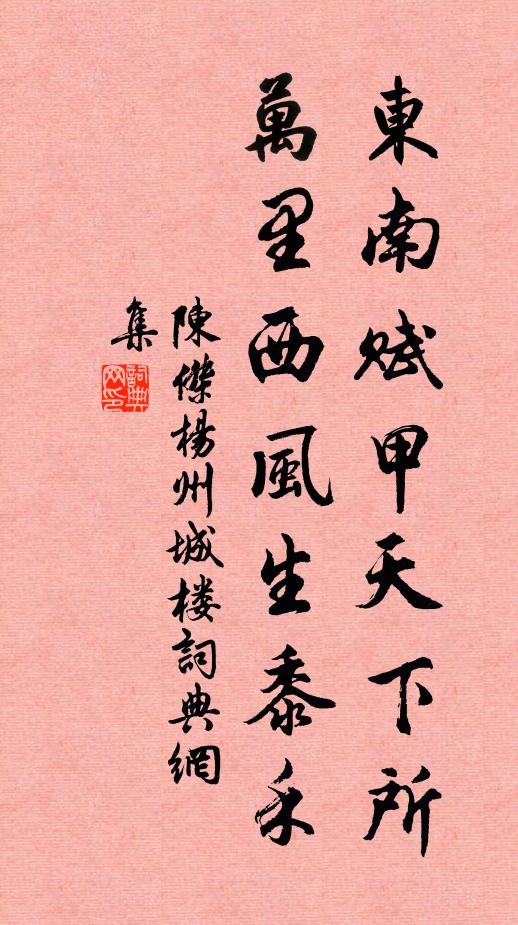 東南賦甲天下所
萬里西風生黍禾
陳傑楊州城楼詞典網
集
詞典
网印